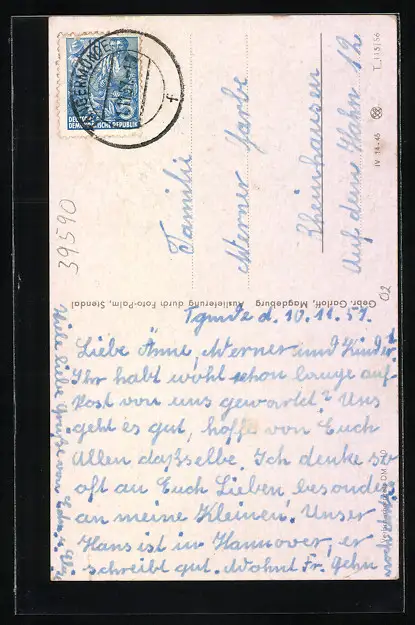 TANGERMÜNDE
DEUTSCHE
DEMOKRATISCHE REPUBLIK
f
39590
Familie
Werner Farbe
Rheinhausen
Auf dem Hahn 12
T 113/56
IV-14-45
02
Gebr. Garloff, Magdeburg Auslieferung durch Foto-Palm, Stendal
Tgmde d. 10.11.57.
Liebe Änne, Werner und Kinder!
Ihr habt wohl schon lange auf
Post von uns gewartet? Uns
geht es gut, hoffe von Euch
Allen daßselbe. Ich denke so
oft an Euch Lieben, besonders
an meine Kleinen. Unser
Hans ist in Hannover, er
schreibt gut. Wohnt Fr. Gehn
Viele liebe Grüße von